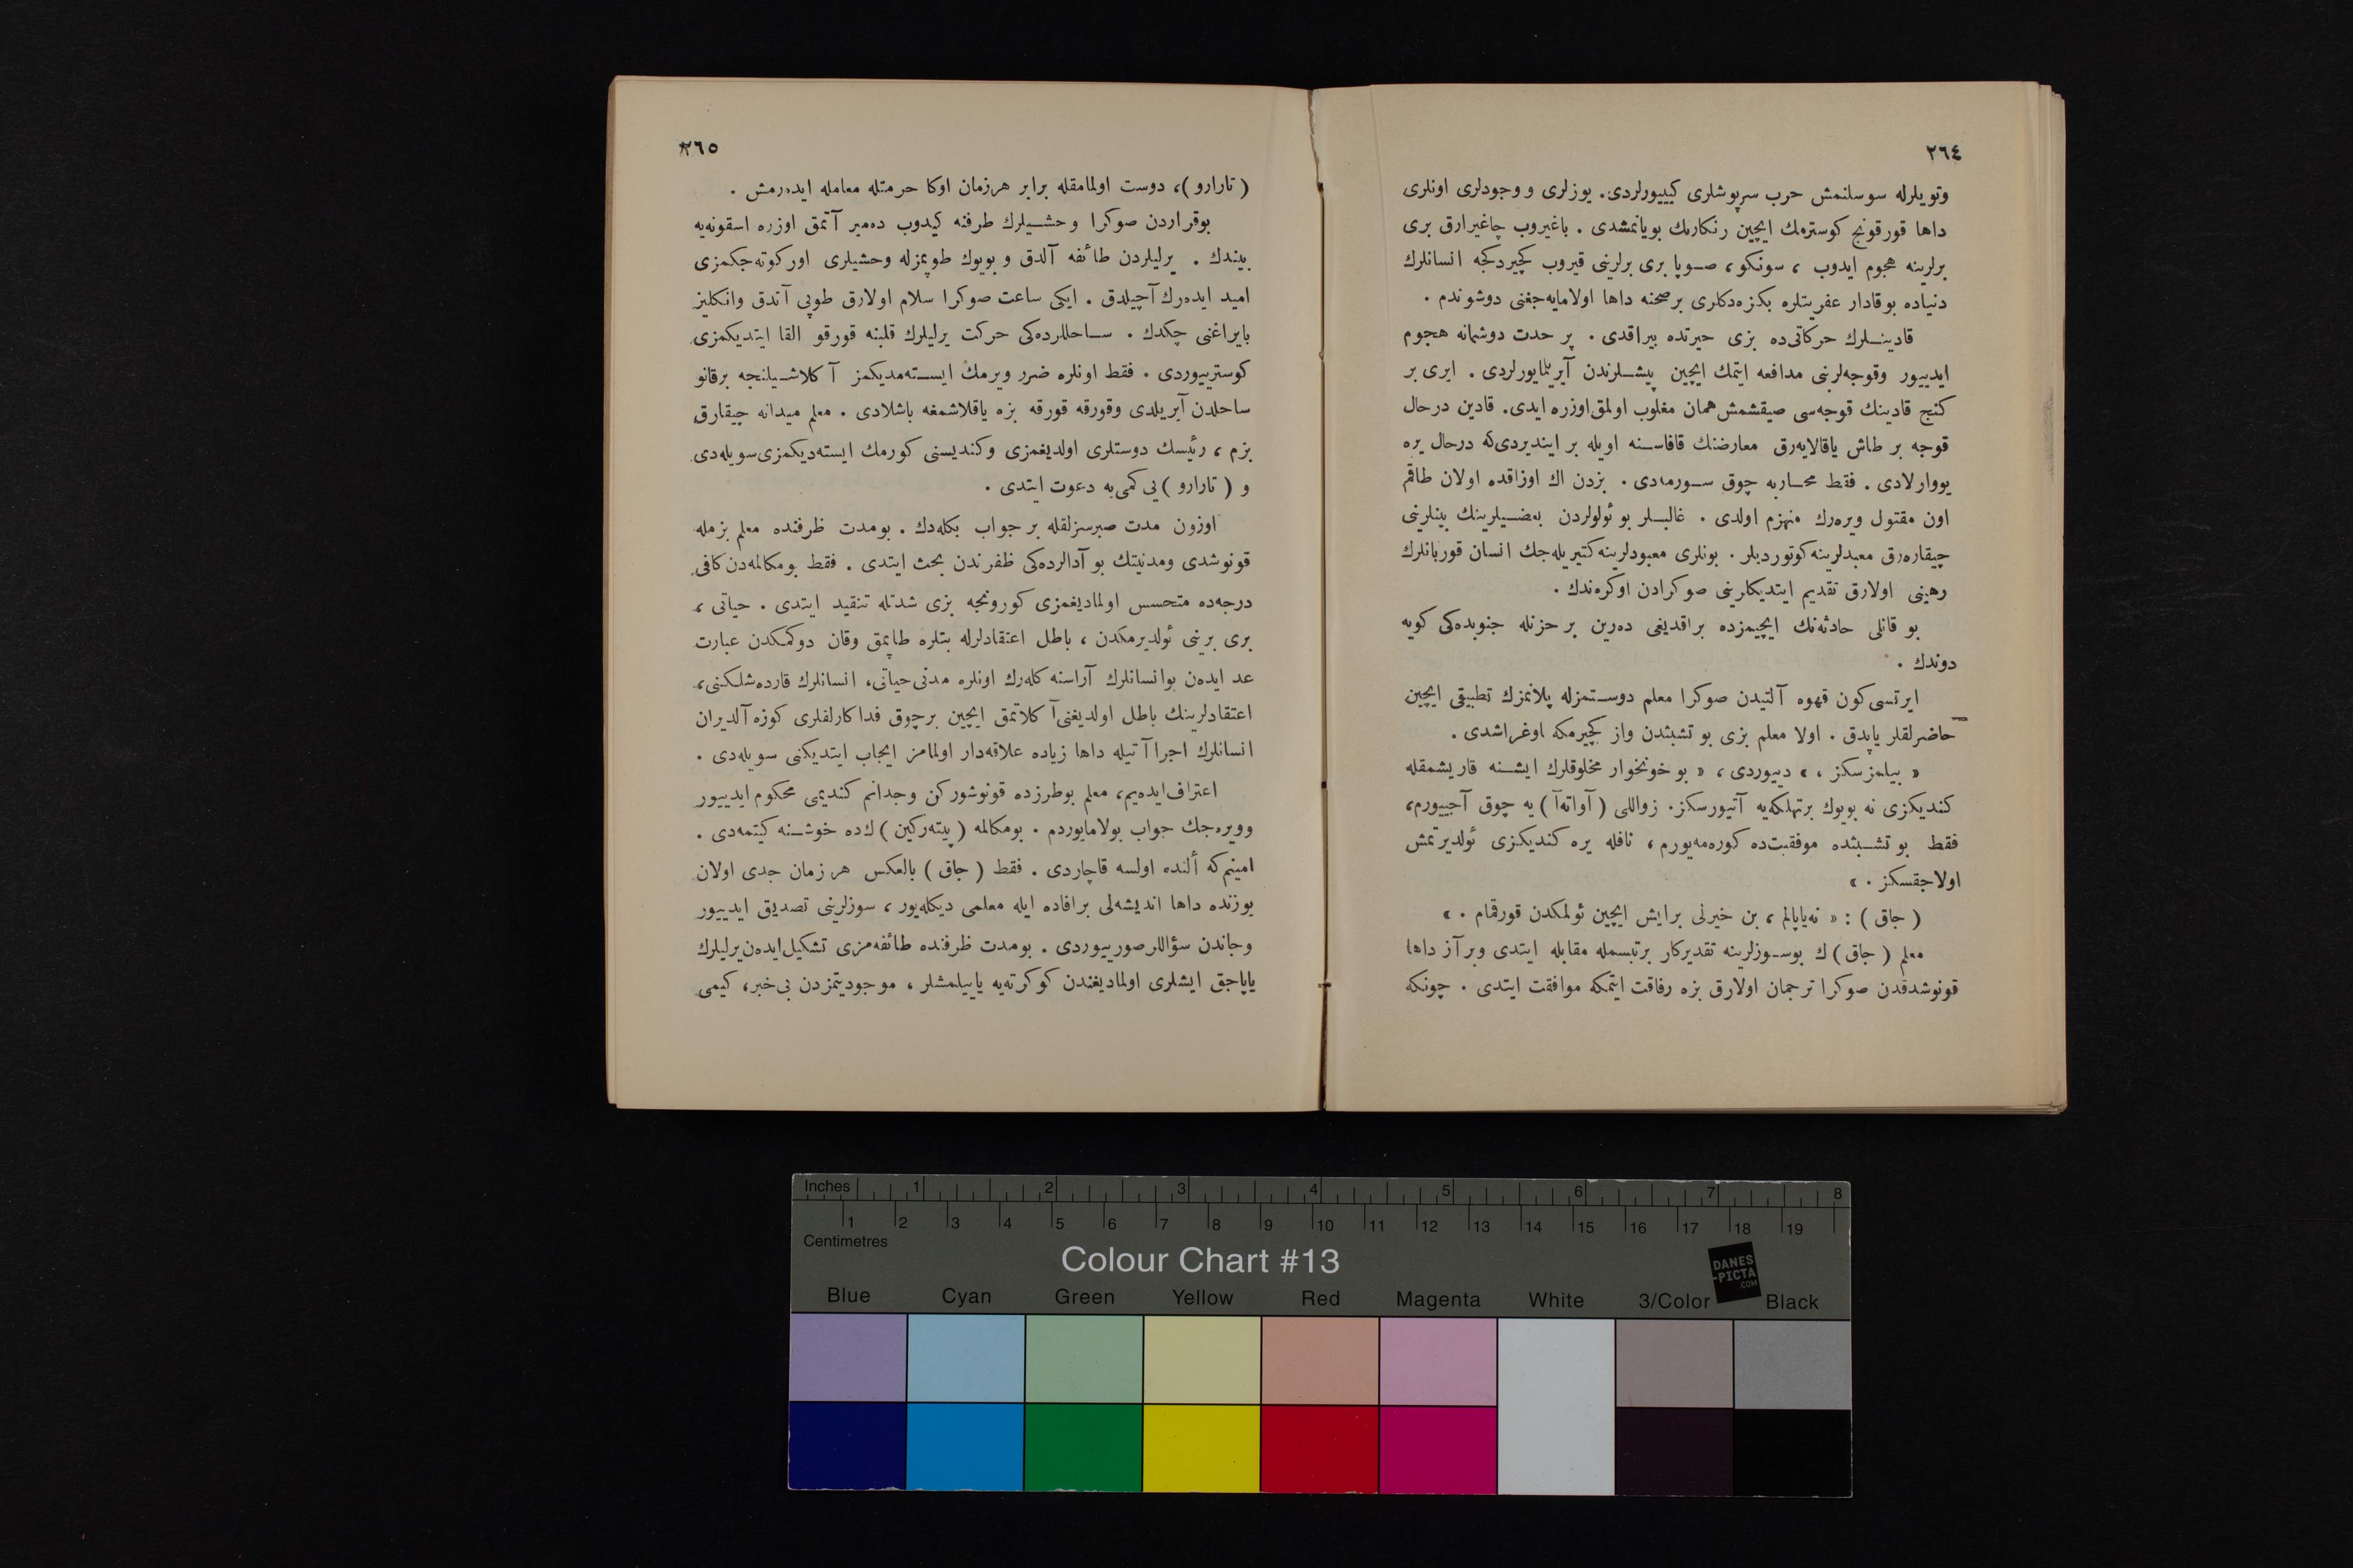 ٢٦٤
وتويلرله سوسلنمش حرب سرپوشلرى كييیورلردى. يوزلرى و وجودلرى اونلرى
داها قورقونج كوسترمك ايچين رنكارنك بويانمشدى . باغيروب چاغيرارق برى
برلرينه هجوم ايدوب ، سونكو، صوپا برى برلرينى قيروب كچيردكجه انسانلرك
دنياده بوقادار عفريتلره بكزه‌دكلرى برصحنه داها اولامايه‌جغنى دوشوندم .
قادينلرك حركاتى‌ده بزى حيرتده بيراقدى . پر حدت دوشمانه هجوم
ايدييور وقوجه‌لرينى مدافعه ايتمك ايچين پيشلرندن آيريلمايورلردى . ايرى بر
كنج قادينك قوجه‌سى صيقشمش همان مغلوب اولمق اوزره ايدى. قادين درحال
قوجه بر طاش ياقالايه‌رق معارضنك قافاسنه اويله بر اينديردى‌كه درحال يره
يووارلادى . فقط محاربه چوق سورمه‌دى . بزدن اك اوزاقده اولان طاقم
اون مقتول ويره‌رك منهزم اولدى . غالبلر بو ئولولردن بعضيلرينك بينلرينى
چيقاره‌رق معبدلرينه كوتوردیلر . بونلرى معبودلرينه كتيريله‌جك انسان قوربانلرك
رهينى اولارق تقديم ايتديكلرينى صوكرادن اوكره‌ندك .
بو قانلى حادثه‌نك ايچيمزده براقديغى ده‌رين بر حزنله جنوبده‌كى كويه
دوندك .
ايرتسى كون قهوه آلتيدن صوكرا معلم دوستمزله پلانمزك تطبيقى ايچين
حاضرلقلر ياپدق . اولا معلم بزى بو تشبثدن واز كچيرمكه اوغراشدى .
« بيلمزسكز ، » دييوردى ، « بو خونخوار مخلوقلرك ايشنه قاريشمقله
كنديكزى نه بويوك برتهلكه‌يه آتيورسكز. زواللى (آواته‌آ) يه چوق آجييورم،
فقط بو تشبثده موفقيت‌ده كوره‌مه‌يورم ، نافله يره كنديكزى ئولديرتمش
اولاجقسكز . »
( جاق ) : « نه‌ياپالم ، بن خيرلى برايش ايچين ئولمكدن قورقمام . »
معلم ( جاق ) ك بوسوزلرينه تقديركار برتبسمله مقابله ايتدى وبرآز داها
قونوشدقدن صوكرا ترجمان اولارق بزه رفاقت ايتمكه موافقت ايتدى . چونكه
٢٦٥
( تارارو )، دوست اولمامقله برابر هرزمان اوكا حرمتله معامله ايده‌رمش .
بوقراردن صوكرا وحشيلرك طرفنه كيدوب ده‌مير آتمق اوزره اسقونه‌يه
بيندك . يرليلردن طائفه آلدق و بويوك طوپمزله وحشيلرى اوركوته‌جكمزى
اميد ايده‌رك آچيلدق . ايكى ساعت صوكرا سلام اولارق طوپى آتدق وانكليز
بايراغنى چكدك . ساحللرده‌كى حركت يرليلرك قلبنه قورقو القا ايتديكمزى
كوسترييوردى . فقط اونلره ضرر ويرمك ايسته‌مديكمز آكلاشيلنجه برقانو
ساحلدن آيريلدى وقورقه قورقه بزه ياقلاشمغه باشلادى . معلم ميدانه چيقارق
بزم ، رئيسك دوستلرى اولديغمزى وكنديسنى كورمك ايسته‌ديكمزى سويله‌دى
و ( تارارو ) يى كمى‌به دعوت ايتدى .
اوزون مدت صبرسزلقله بر جواب بكله‌دك . بومدت ظرفنده معلم بزمله
قونوشدى ومدنيتك بو آدالرده‌كى ظفرندن بحث ايتدى . فقط بومكالمه‌دن كافى
درجه‌ده متحسس اولماديغمزى كورونجه بزى شدتله تنقيد ايتدى . حياتى ،
برى برينى ئولديرمكدن ، باطل اعتقادلرله بتلره طاپمق وقان دوكمكدن عبارت
عد ايده‌ن بوانسانلرك آراسنه كله‌رك اونلره مدنى حياتى، انسانلرك قارده‌شلكنى،
اعتقادلرينك باطل اولديغنى آكلاتمق ايچين برچوق فداكارلقلرى كوزه آلديران
انسانلرك اجراآتيله داها زياده علاقه‌دار اولمامز ايجاب ايتديكنى سويله‌دى .
اعتراف ايده‌يم، معلم بوطرزده قونوشوركن وجدانم كنديمى محكوم ايدييور
وويره‌جك جواب بولامايوردم . بومكالمه ( پيته‌ركين ) ك‌ده خوشنه كيتمه‌دى .
امينم كه ألنده اولسه قاچاردى . فقط ( جاق ) بالعكس هر زمان جدى اولان
يوزنده داها انديشه‌لى برافاده ايله معلمى ديكله‌يور ، سوزلرينى تصديق ايدييور
وجاندن سؤاللر صورييوردى . بومدت ظرفنده طائفه‌مزى تشكيل ايده‌ن يرليلرك
ياپاجق ايشلرى اولماديغندن كوكرته‌يه ياييلمشلر ، موجوديتمزدن بى‌خبر، كيمى
Inches 1 2 3 4 5 6 7 8
1 2 3 4 5 6 7 8 9 10 11 12 13 14 15 16 17 18 19
Centimetres
Colour Chart #13
DANES-PICTA.COM
Blue Cyan Green Yellow Red Magenta White 3/Color Black